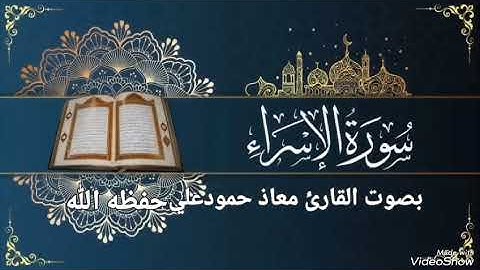 سُورَةُ الإِسْرَاءِ
بصوت القارئ معاذ حمودعلي حفظه الله
Made with
VideoShow